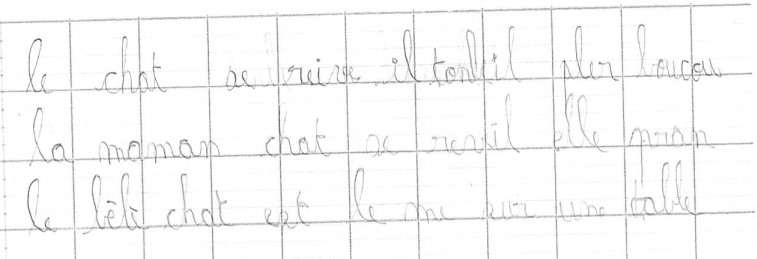 le chat se reive il tonbil pler boucou
la maman chat se revil elle pran
le bêbè chat est le me sur une table